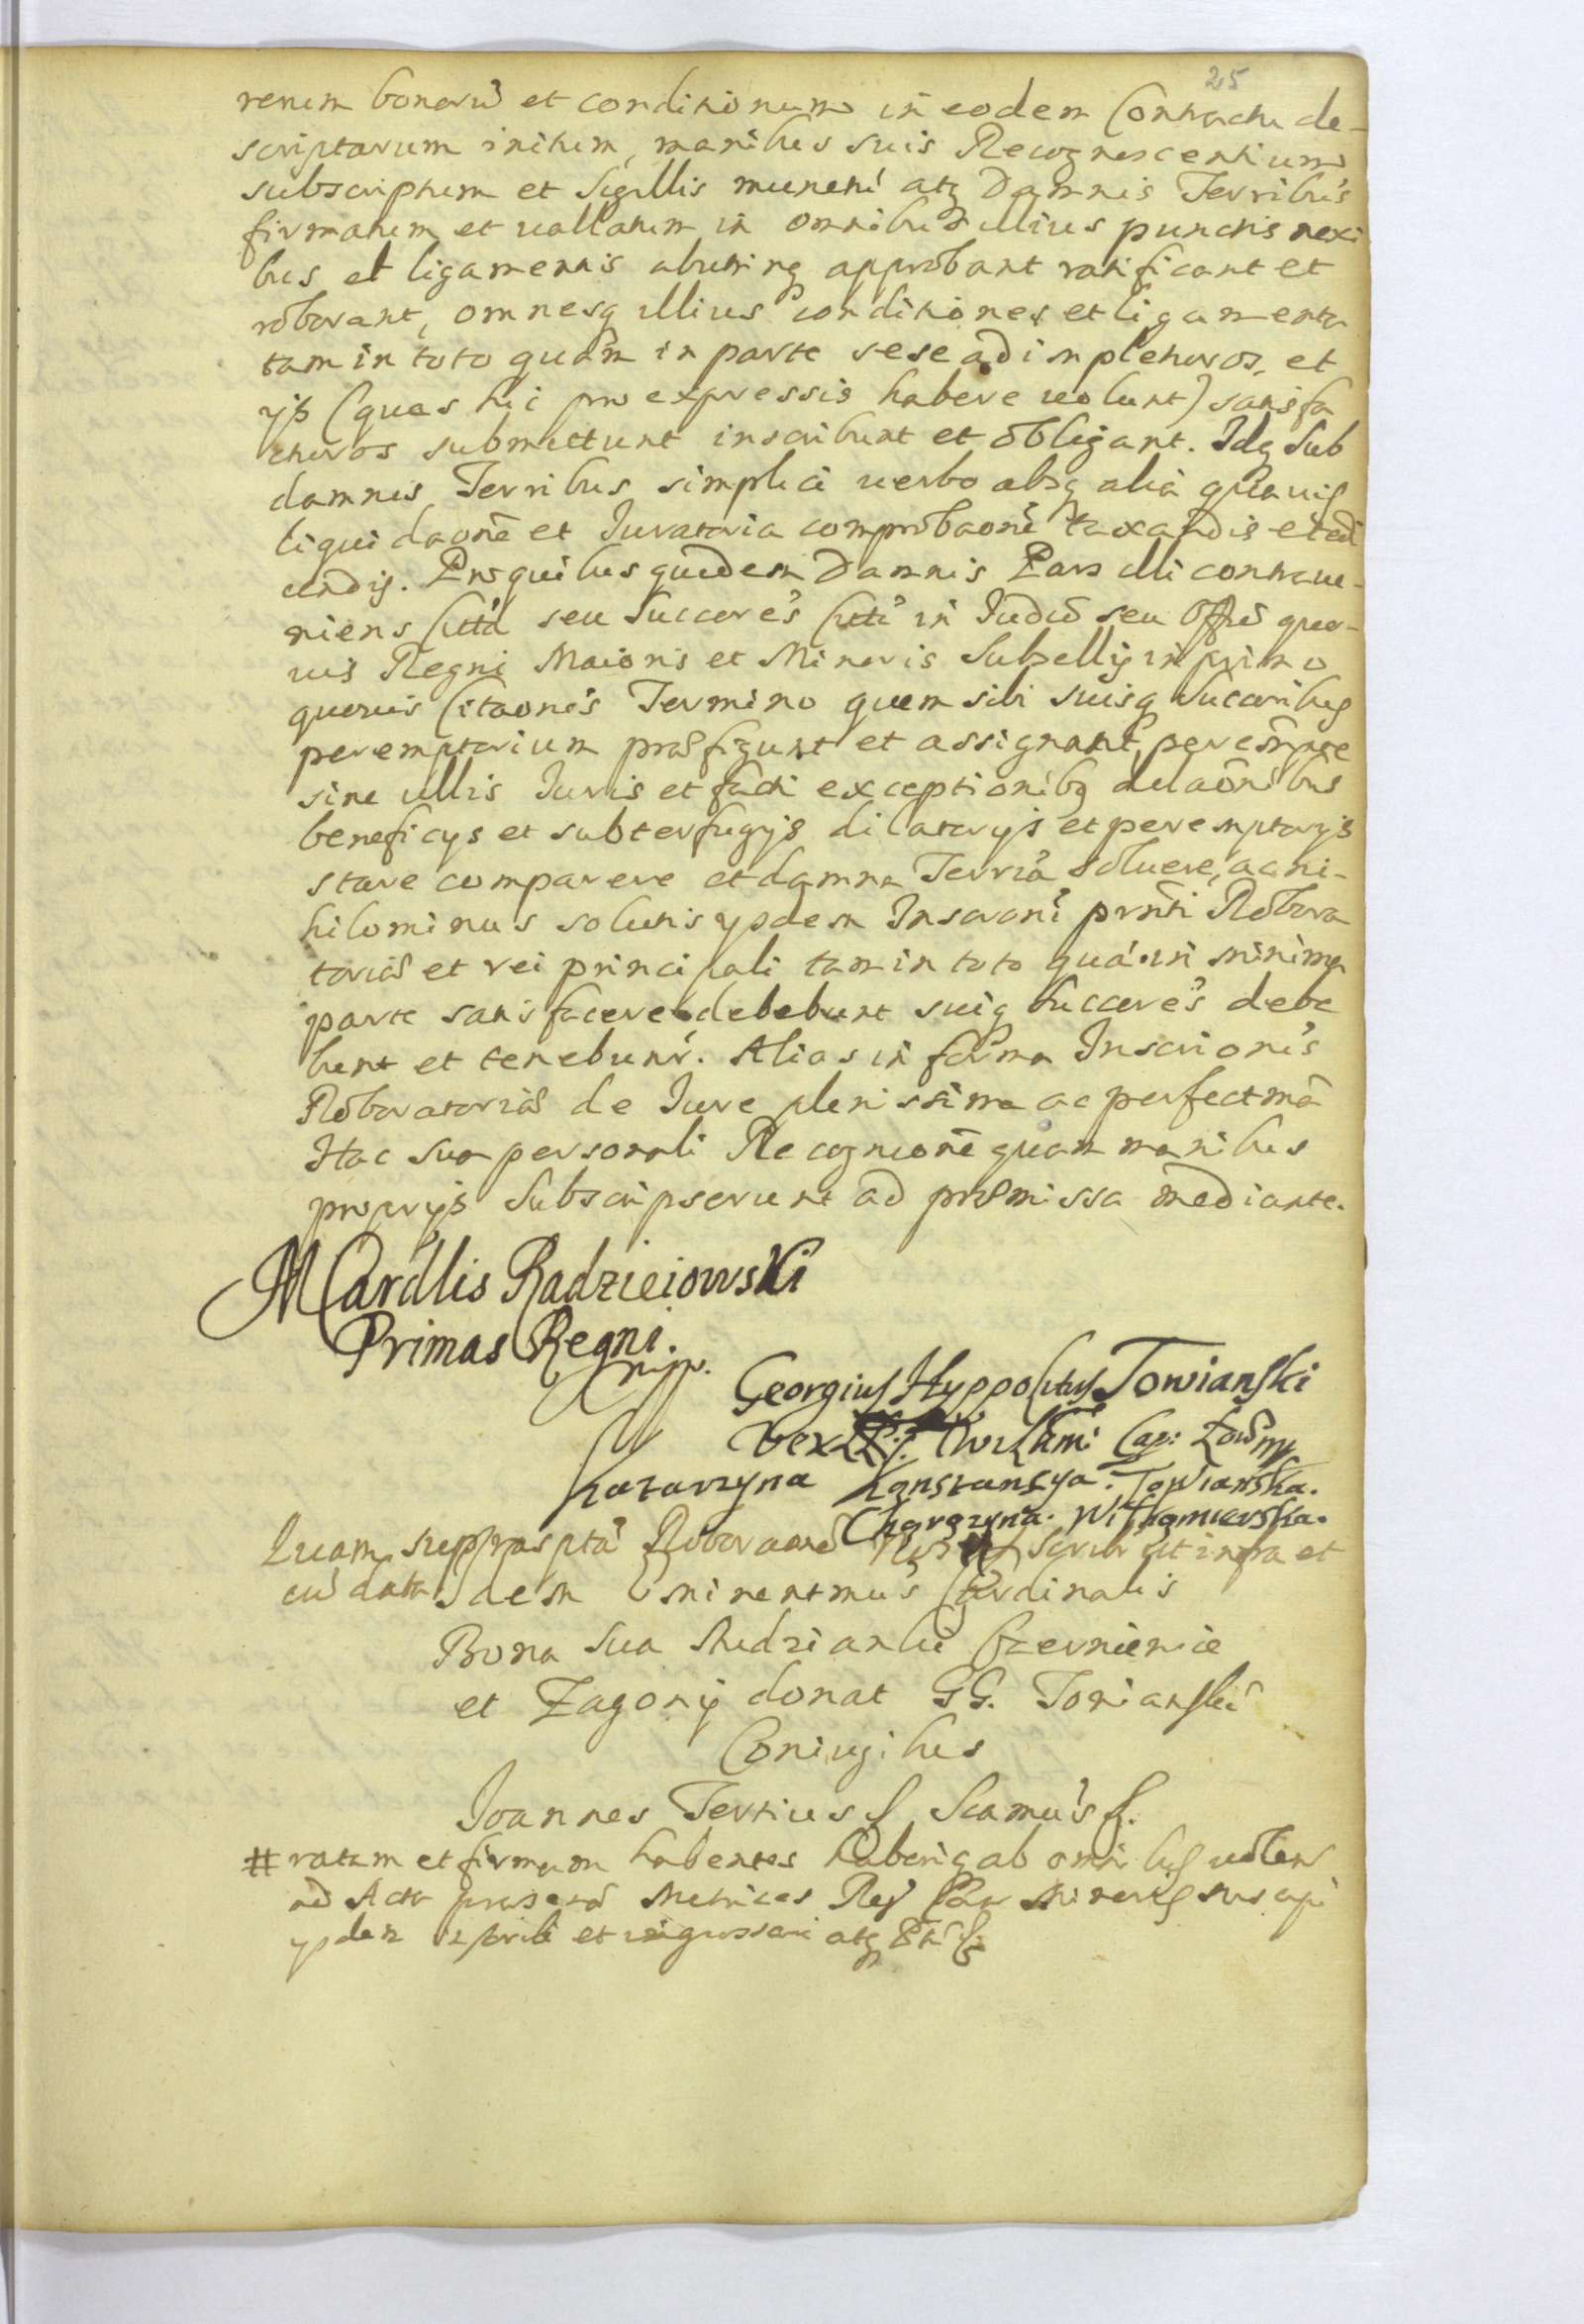 25
renem bonorũ et conditionum in eodem Contractu de-
scriptarum initum, manibus suis Recognoscentium
subscriptum et Sigillis muniti atq Damnis Terribus
firmatum et vallatum in omnibus illius punctis nexi
bus et ligamentis abutinq approbant ratificant et
roborant, omnesq illius conditiones et ligamenta
tam in toto quàm in parte sese adimpleturos, et
ijs (quas hic pro expressis habere uolunt) satisfa
cturos submittunt inscribunt et obligant. Idq Sub
damnis Terribus simplici uerbo absq alia quauis
liquidaone et Iuratoria comprobaone taxandis et edi
cendis. Pro quibus quidem Damnis Pars illi contraue-
niens Citta seu Succores Citti in Iudcio seu Offo quo-
uis Regni Maioris et Minoris Subsellijs in primo
quouis Citaonis Termino quem sibi suisq Succoribus
peremptorium præfigunt et assignant, peremptorie
sine ullis Iuris et facti exceptionibq dilaonibus
beneficys et subterfugijs dilatorijs et peremptorijs
stare comparere et damna Terria soluere, ac ni-
hilominus solutis ysdem Inscrõni prnti Robora
toriæ et rei principali tam in toto quá in minima
parte satisfacere debebunt suiq Succores debe
bunt et tenebunr. Alias in forma Inscrionis
Roboratoriæ de Iure plenissima ac perfectma
Hac sua personali Recognione quam manibus
proprijs Subscripserunt ad præmissa mediante.
M Cardlis Radzieiowski
Primas Regni.
mpp.
Georgius Hyppolitus Towianski
Katarzyna Konstancya. Towianska.
Quam suprasptã Roboraonẽ ut infra et
cũ data Idem Eminentmus Cardinalis
Bona sua Mudzianki Czerniewice
et Zagory donat GG. Towianskĩ
Coniugibus
Joannes Tertius &. Scamus &.
# ratam et firmam habentes haberiq ab omnibus uolen
ad Acta præsentia Metrices Regni Can Minoris suscepi
ysdem et ingrossari atq